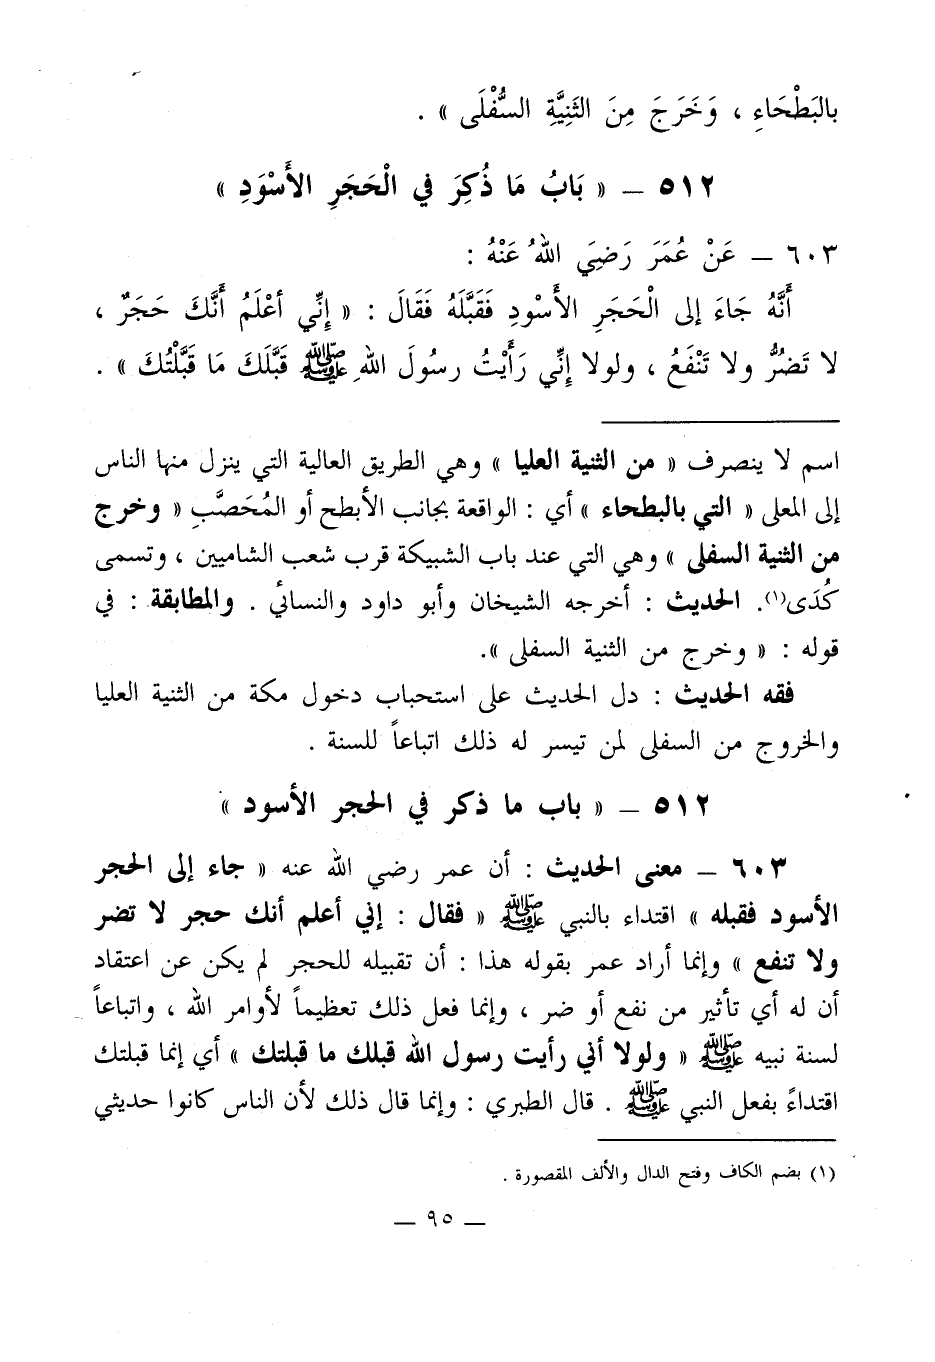 بالبَطْحَاءِ ، وَخَرَجَ مِنَ الثَنِيَّةِ السُّفْلَى » .
٥١٢ – « بَابُ مَا ذُكِرَ في الْحَجَرِ الأَسْوَدِ »
٦٠٣ – عَنْ عُمَرَ رَضِيَ اللهُ عَنْهُ :
أَنَّهُ جَاءَ إلى الْحَجَرِ الأَسْودِ فَقَبَّلَهُ فَقَالَ : « إِنِّي أعْلَمُ أَنَّكَ حَجَرٌ ،
لا تَضُرُّ ولا تَنْفَعُ ، ولولا إِنِّي رَأَيْتُ رسُولَ اللهِ ﷺ قَبَّلَكَ مَا قَبَّلْتُكَ » .
اسم لا ينصرف « من الثنية العليا » وهي الطريق العالية التي ينزل منها الناس
إلى المعلى « التي بالبطحاء » أي : الواقعة بجانب الأبطح أو المُحَصَّبِ « وخرج
من الثنية السفلى » وهي التي عند باب الشبيكة قرب شعب الشاميين ، وتسمى
كُدَى(١). الحديث : أخرجه الشيخان وأبو داود والنسائي . والمطابقة : في
قوله : « وخرج من الثنية السفلى ».
فقه الحديث : دل الحديث على استحباب دخول مكة من الثنية العليا
والخروج من السفلى لمن تيسر له ذلك اتباعاً للسنة .
٥١٢ – « باب ما ذكر في الحجر الأسود »
٦٠٣ – معنى الحديث : أن عمر رضي الله عنه « جاء إلى الحجر
الأسود فقبله » اقتداء بالنبي ﷺ « فقال : إني أعلم أنك حجر لا تضر
ولا تنفع » وإنما أراد عمر بقوله هذا : أن تقبيله للحجر لم يكن عن اعتقاد
أن له أي تأثير من نفع أو ضر ، وإنما فعل ذلك تعظيماً لأوامر الله ، واتباعاً
لسنة نبيه ﷺ « ولولا أني رأيت رسول الله قبلك ما قبلتك » أي إنما قبلتك
اقتداءً بفعل النبي ﷺ . قال الطبري : وإنما قال ذلك لأن الناس كانوا حديثي
(١) بضم الكاف وفتح الدال والألف المقصورة .
– ٩٥ –